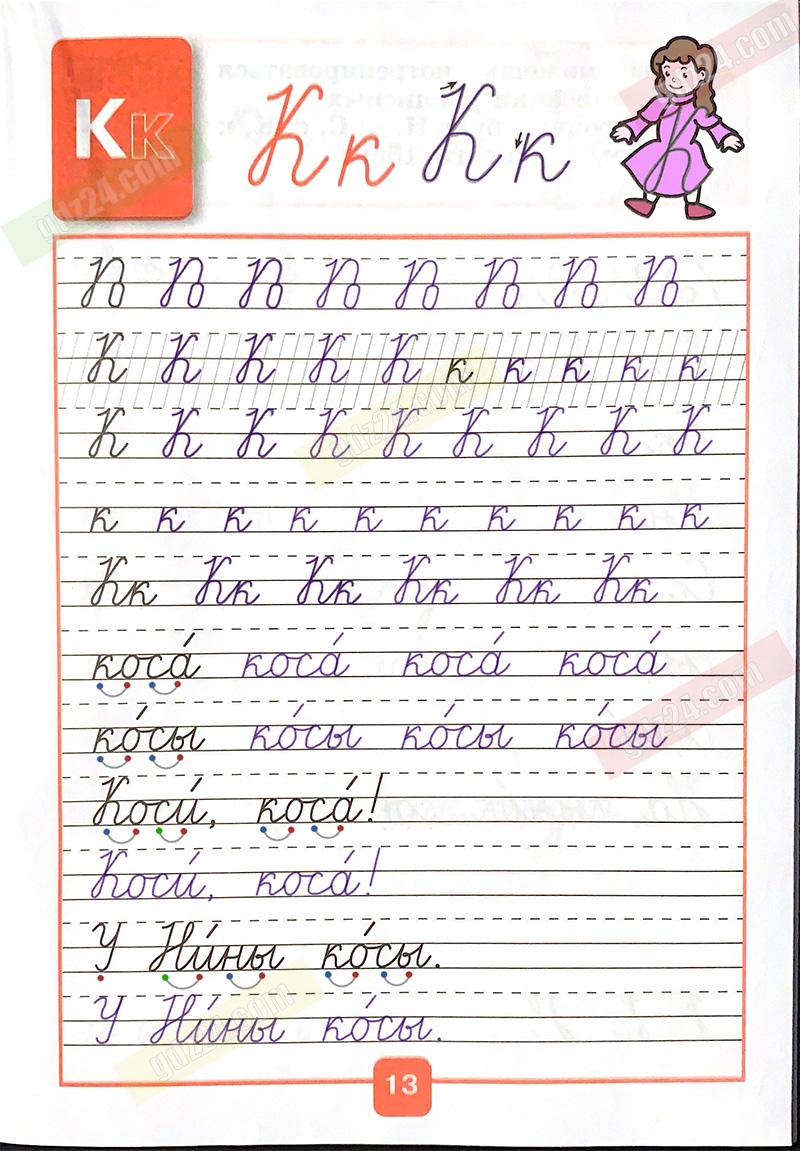 Кк Кк Кк
К К К К К к к к к к
К К К К К К К К К
к к к к к к к к к к
Кк Кк Кк Кк Кк Кк
коса́ коса́ коса́ коса́
ко́сы ко́сы ко́сы ко́сы
Коси́, коса́!
Коси́, коса́!
У Ни́ны ко́сы.
У Ни́ны ко́сы.
13
gdz24.com
gdz24.com
gdz24.com
gdz24.com
gdz24.com